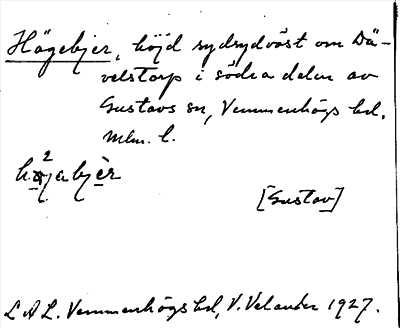 Högebjer, höjd sydsydväst om Dä-
velstorp i södra delen av
Gustavs sn, Vemmenhögs hd.
Mlm. l.
[Gustav]
L A L. Vemmenhögs hd, V. Velander 1927.